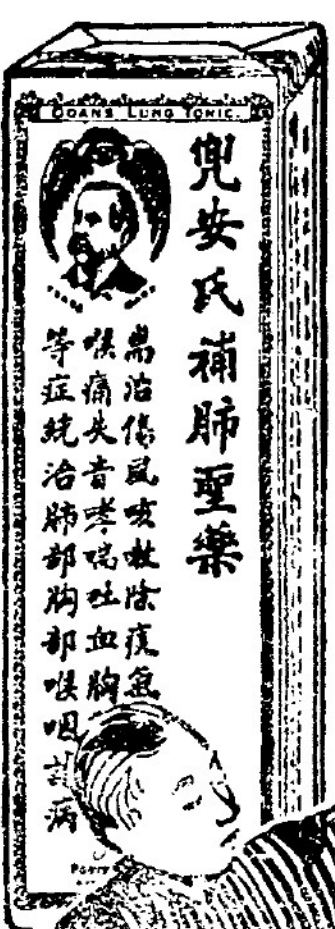 DOANS LUNG TONIC.
TRADE MARK
兜安氏補肺聖藥
耑治傷風咳嗽除痰
喉痛失音哮喘吐血胸
等症統治肺部胸部喉咽諸病